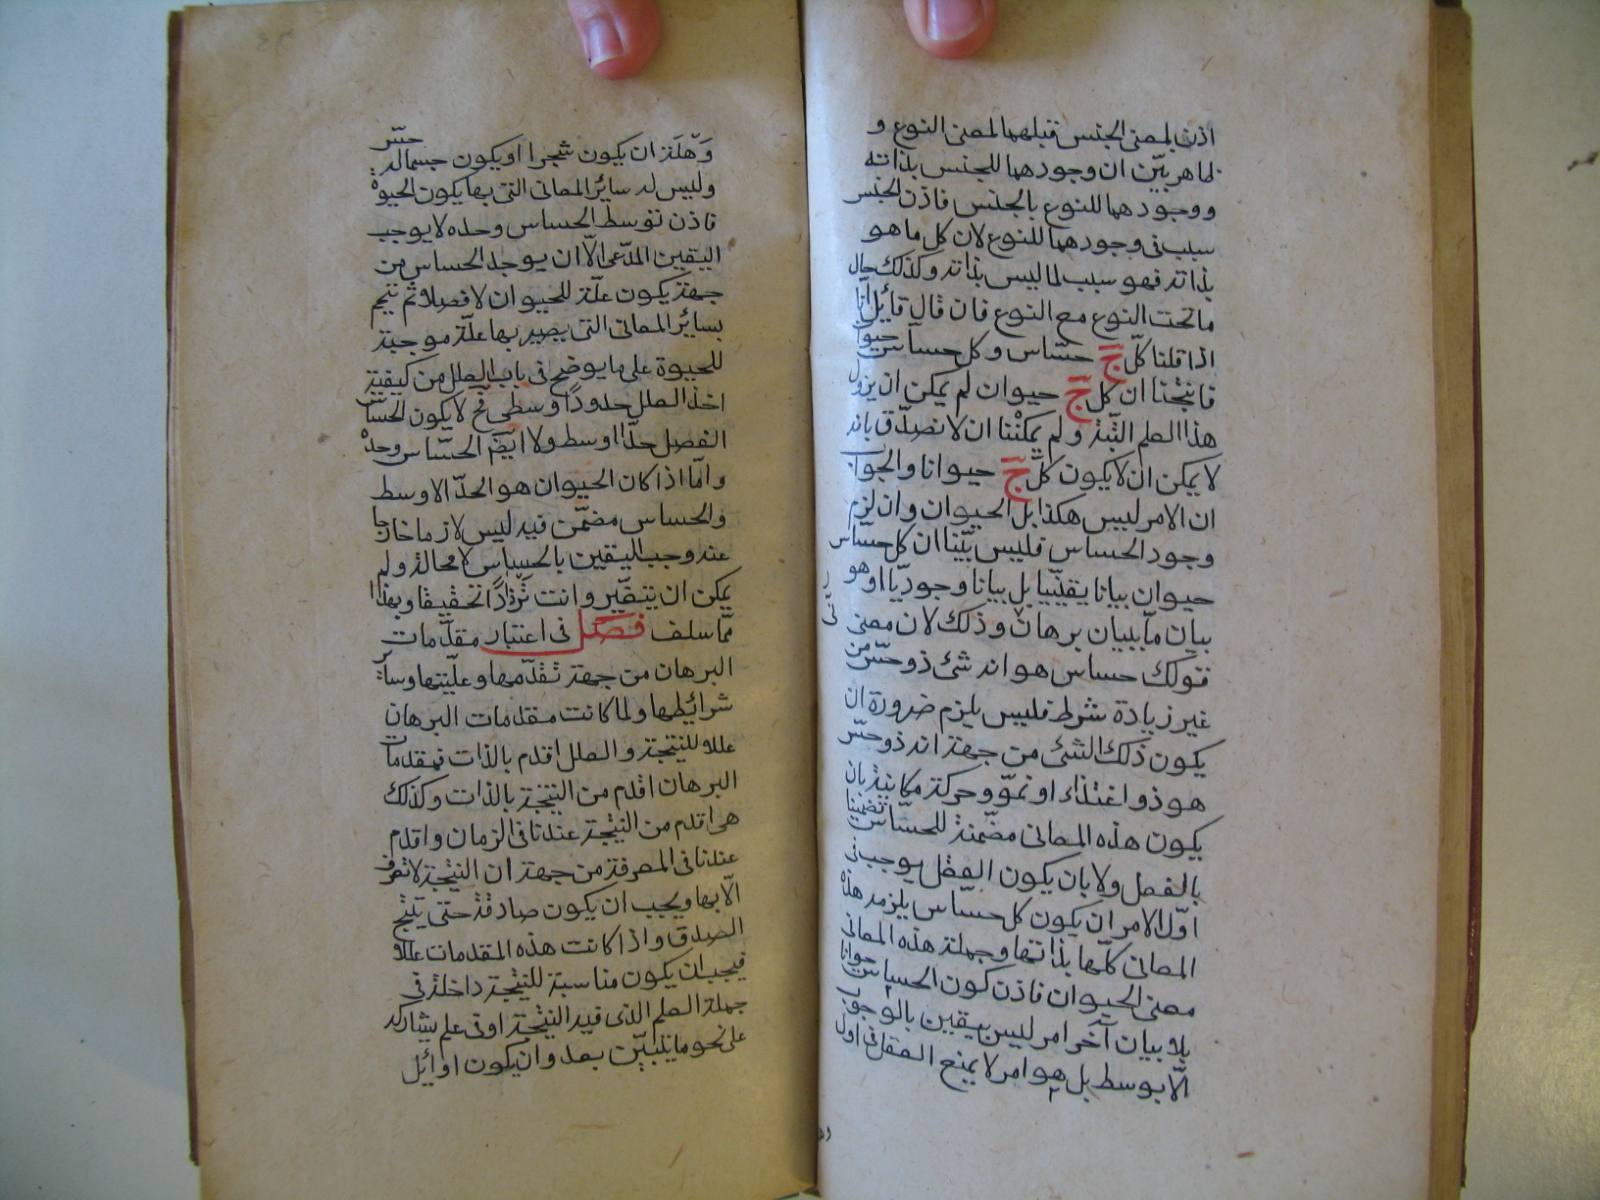 اذن لمعنى الجنس قبلهما لمعنى النوع و
ظاهر بيّن ان وجودهما للجنس بذاته
ووجودهما للنوع بالجنس فاذن الجنس
سبب فى وجودهما للنوع لان كل ما هو
بذاته فهو سبب لما ليس بذاته وكذلك حال
ما تحت النوع مع النوع فان قال قائل انّا
اذا قلنا كلّ ج حسّاس وكل حسّاس حيوان
فانتجنا ان كل ج حيوان لم يمكن ان يزول
هذا العلم البتّة ولم يمكننا ان لا نصدّق بانه
لا يمكن ان لا يكون كلّ ج حيوانا والجواب
ان الامر ليس هكذا بل الحيوان وان لزم
وجود الحساس فليس بيّنا ان كل حسّاس
حيوان بيانا يقينيا بل بيانا وجوديّا او هو
بيان ما ببيان برهان وذلك لان معنى
قولك حساس هو انه شئ ذو حسّ من
غير زيادة شرط فليس يلزم ضرورة ان
يكون ذلك الشئ من جهة انه ذو حسّ
هو ذو اغتذاء او نموّ وحركة مكانية بان
يكون هذه المعانى مضمنة للحسّاس تضمينا
بالفعل ولا بان يكون العقل يوجب فى
اوّل الامر ان يكون كل حسّاس يلزمه هذه
المعانى كلّها بذاتها وجملة هذه المعانى
معنى الحيوان فاذن كون الحساس حيوانا
بلا بيان آخر امر ليس بيقين بالوجوب
الّا بوسط بل هو امر لا يمنع العقل فى اول
وَهْلَة ان يكون شجرا او يكون جسما له حسّ
وليس له سائر المعانى التى بها يكون الحيوة
فاذن توسط الحساس وحده لا يوجب
اليقين المدّعى الّا ان يوجد الحساس من
جهة يكون علّة للحيوان لا فصلا ثم تتم
بسائر المعانى التى يصير بها علّة موجبة
للحيوة على ما يوضح فى باب العلل من كيفية
اخذ العلل حدودًا وسطى فح لا يكون الحساس
الفصل حدّا اوسط ولا ايضم الحسّاس وحده
وامّا اذا كان الحيوان هو الحدّ الاوسط
والحساس مضمّن فيه ليس لازما خارجا
عنه وجب اليقين بالحساس لا محالة ولم
يمكن ان يتغيّر وانت تَزْدَادُ تحقيقا وبهذا
ممّا سلف فصل فى اعتبار مقدّمات
البرهان من جهة تقدّمها وعلّيتها وسائر
شرائطها ولما كانت مقدمات البرهان
عللا للنتيجة والعلل اقدم بالذات فمقدمات
البرهان اقدم من النتيجة بالذات وكذلك
هى اقدم من النتيجة عندنا فى الزمان واقدم
عندنا فى المعرفة من جهة ان النتيجة لا تعرف
الّا بها ويجب ان يكون صادقة حتى ينتج
الصدق واذا كانت هذه المقدمات عللا
فيجب ان يكون مناسبة للنتيجة داخلة فى
جملة العلم الذى فيه النتيجة او فى علم يشاركه
على نحو ما يتبيّن بعد وان يكون اوائل